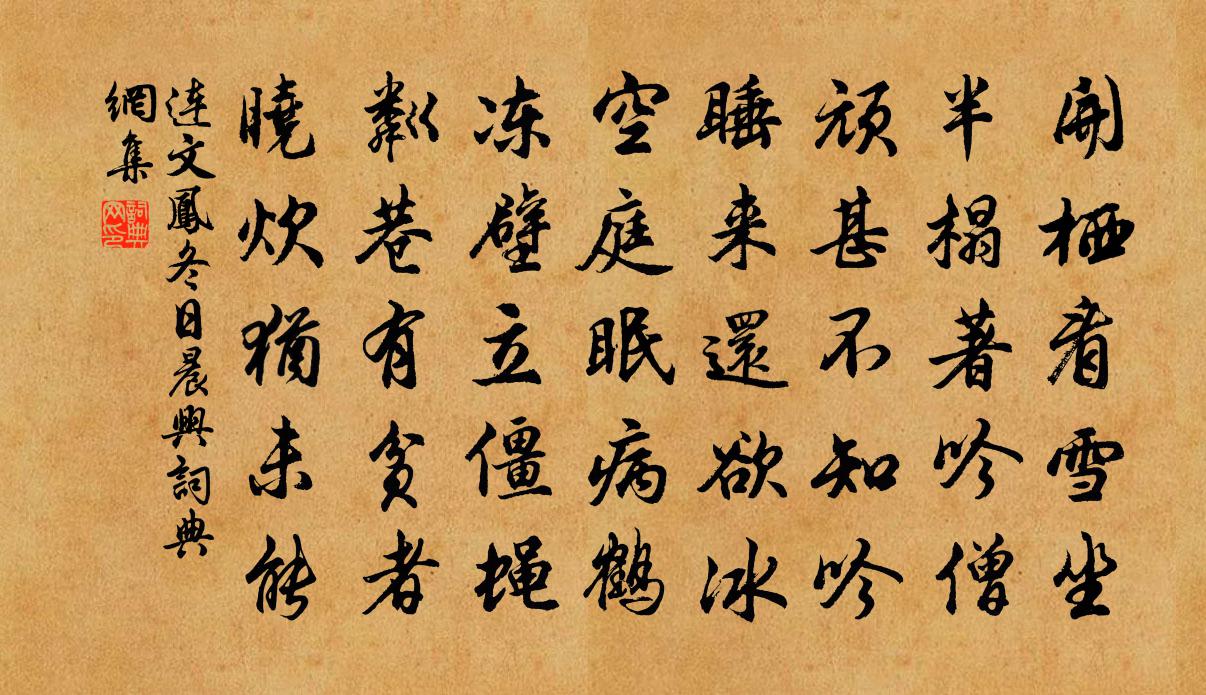 開栖看雪坐
半榻著吟僧
頑甚不知吟
睡来還欲冰
空庭眠病鶴
冻壁立僵蝇
鄰巷有貧者
曉炊猶未能
连文鳳冬日晨興詞典
網集
詞典网印